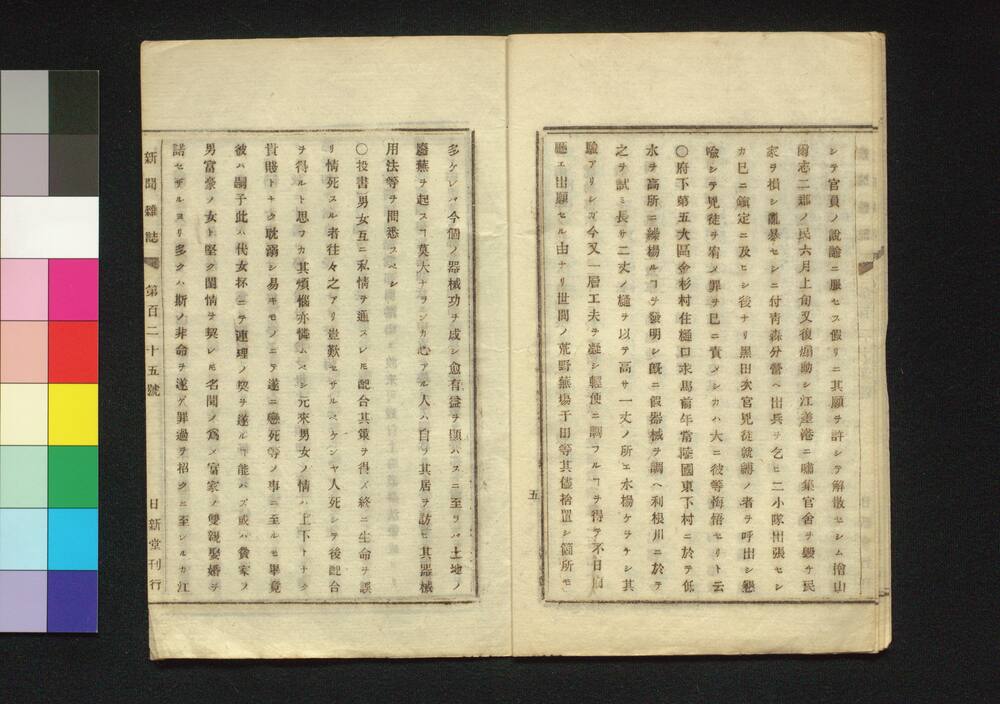 シテ官員ノ說諭ニ服セス假リニ其願ヲ許シテ解散セシム檜山
爾志二郡ノ民六月上旬又復煽動シ江差港ニ嘯集官舍ヲ毀ケ民
家ヲ損シ亂暴セシニ付靑森分營ヘ出兵ヲ乞ヒ二小隊出張セシ
カ巳ニ鎭定ニ及ヒシ後ナリ黑田次官兇徒就縛ノ者ヲ呼出シ懇
喩シテ兇徒ヲ宥メ罪ヲ巳ニ責メシカハ大ニ彼等悔悟セリト云
〇府下第五大區金杉村住樋口求馬前年常陸國東下村ニ於テ低
水ヲ高所ニ繰揚ルヿヲ發明シ旣ニ假器械ヲ調ヘ利根川ニ於テ
之ヲ試ミ長サ二丈ノ樋ヲ以テ高サ一丈ノ所エ水揚ケヲナシ其
驗アリシガ今又一層工夫ヲ凝シ輕便ニ調フルヿヲ得テ不日官
廳エ出願セル由ナリ世間ノ荒野蕪場干田等其儘捨置シ箇所モ
五
多ケレハ今個ノ器械功ヲ成シ愈有益ヲ顯ハスニ至ラハ土地ノ
廢蕪ヲ起スヿ莫大ナランカ志アル人ハ自ラ其居ヲ訪ヒ其器械
用法等ヲ問悉スベシ
〇投書男女互ニ私情ヲ通スレ𪜈配合其策ヲ得ス終ニ生命ヲ誤
リ情死スル者往々之アリ豈歎セサルベケンヤ人死シテ後配合
ヲ得ルト思フカ其煩惱亦憐ムベシ元來男女ノ情ハ上下トナク
貴賤トナク耽溺シ易キモノニテ遂ニ戀死等ノ事ニ至ルモ畢竟
彼ハ嗣子此ハ代女杯ニテ連理ノ契ヲ遂ルヿ能ハズ或ハ貧家ノ
男富豪ノ女ト堅ク閨情ヲ契レ𪜈名聞ノ爲メ富家ノ雙親娶婚ヲ
諾セザルヨリ多クハ斯ノ非命ヲ遂ケ罪過ヲ招クニ至シルカ江
新聞雜誌 第百二十五號 日新堂刊行